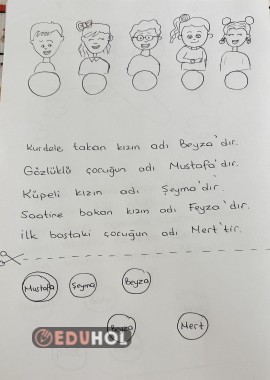 Kurdele takan kızın adı Beyza'dır.
Gözlüklü çocuğun adı Mustafa'dır.
Küpeli kızın adı Şeyma'dır.
Saatine bakan kızın adı Feyza'dır.
İlk baştaki çocuğun adı Mert'tir.
Mustafa Şeyma Beyza
Mert
EDUHOL